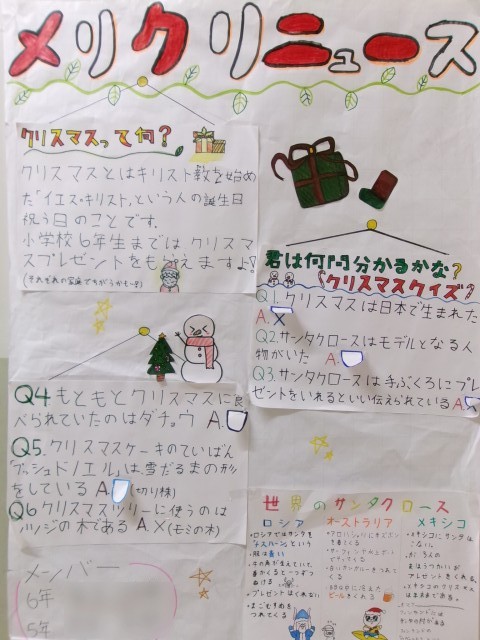 メリクリニュース
クリスマスって何?
クリスマスとはキリスト教を始め
た「イエス・キリスト」という人の誕生日
祝う日のことです。
小学校6年生までは、クリスマ
スプレゼントをもらえますよ!
(それぞれの家庭でちがうかも…)
君は何問分かるかな?
「クリスマスクイズ」
Q1.クリスマスは日本で生まれた
A.X
Q2.サンタクロースはモデルとなる人
物がいた A.
Q3.サンタクロースは手ぶくろにプレ
ゼントをいれるといい伝えられている A.X
Q4もともとクリスマスに食
べられていたのはダチョウ A.
Q5.クリスマスケーキのていばん
「ブッシュドノエル」は雪だるまの形
をしている A (切り株)
Q6クリスマスツリーに使うのは
ツツジの木である A.X(モミの木)
メンバー
6年
5年
世界のサンタクロース
ロシア
・ロシアではサンタを
という
・服は青い
オーストラリア
・サーフィンやヨットで
やってくる
ビールをくれる
メキシコ
・メキシコにサンタは
こない。
プレゼントをくれる。